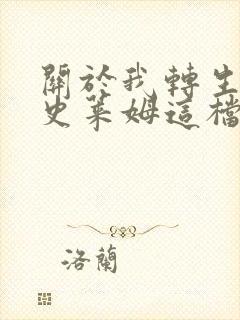 關於我轉生
史萊姆這檔
洛蘭